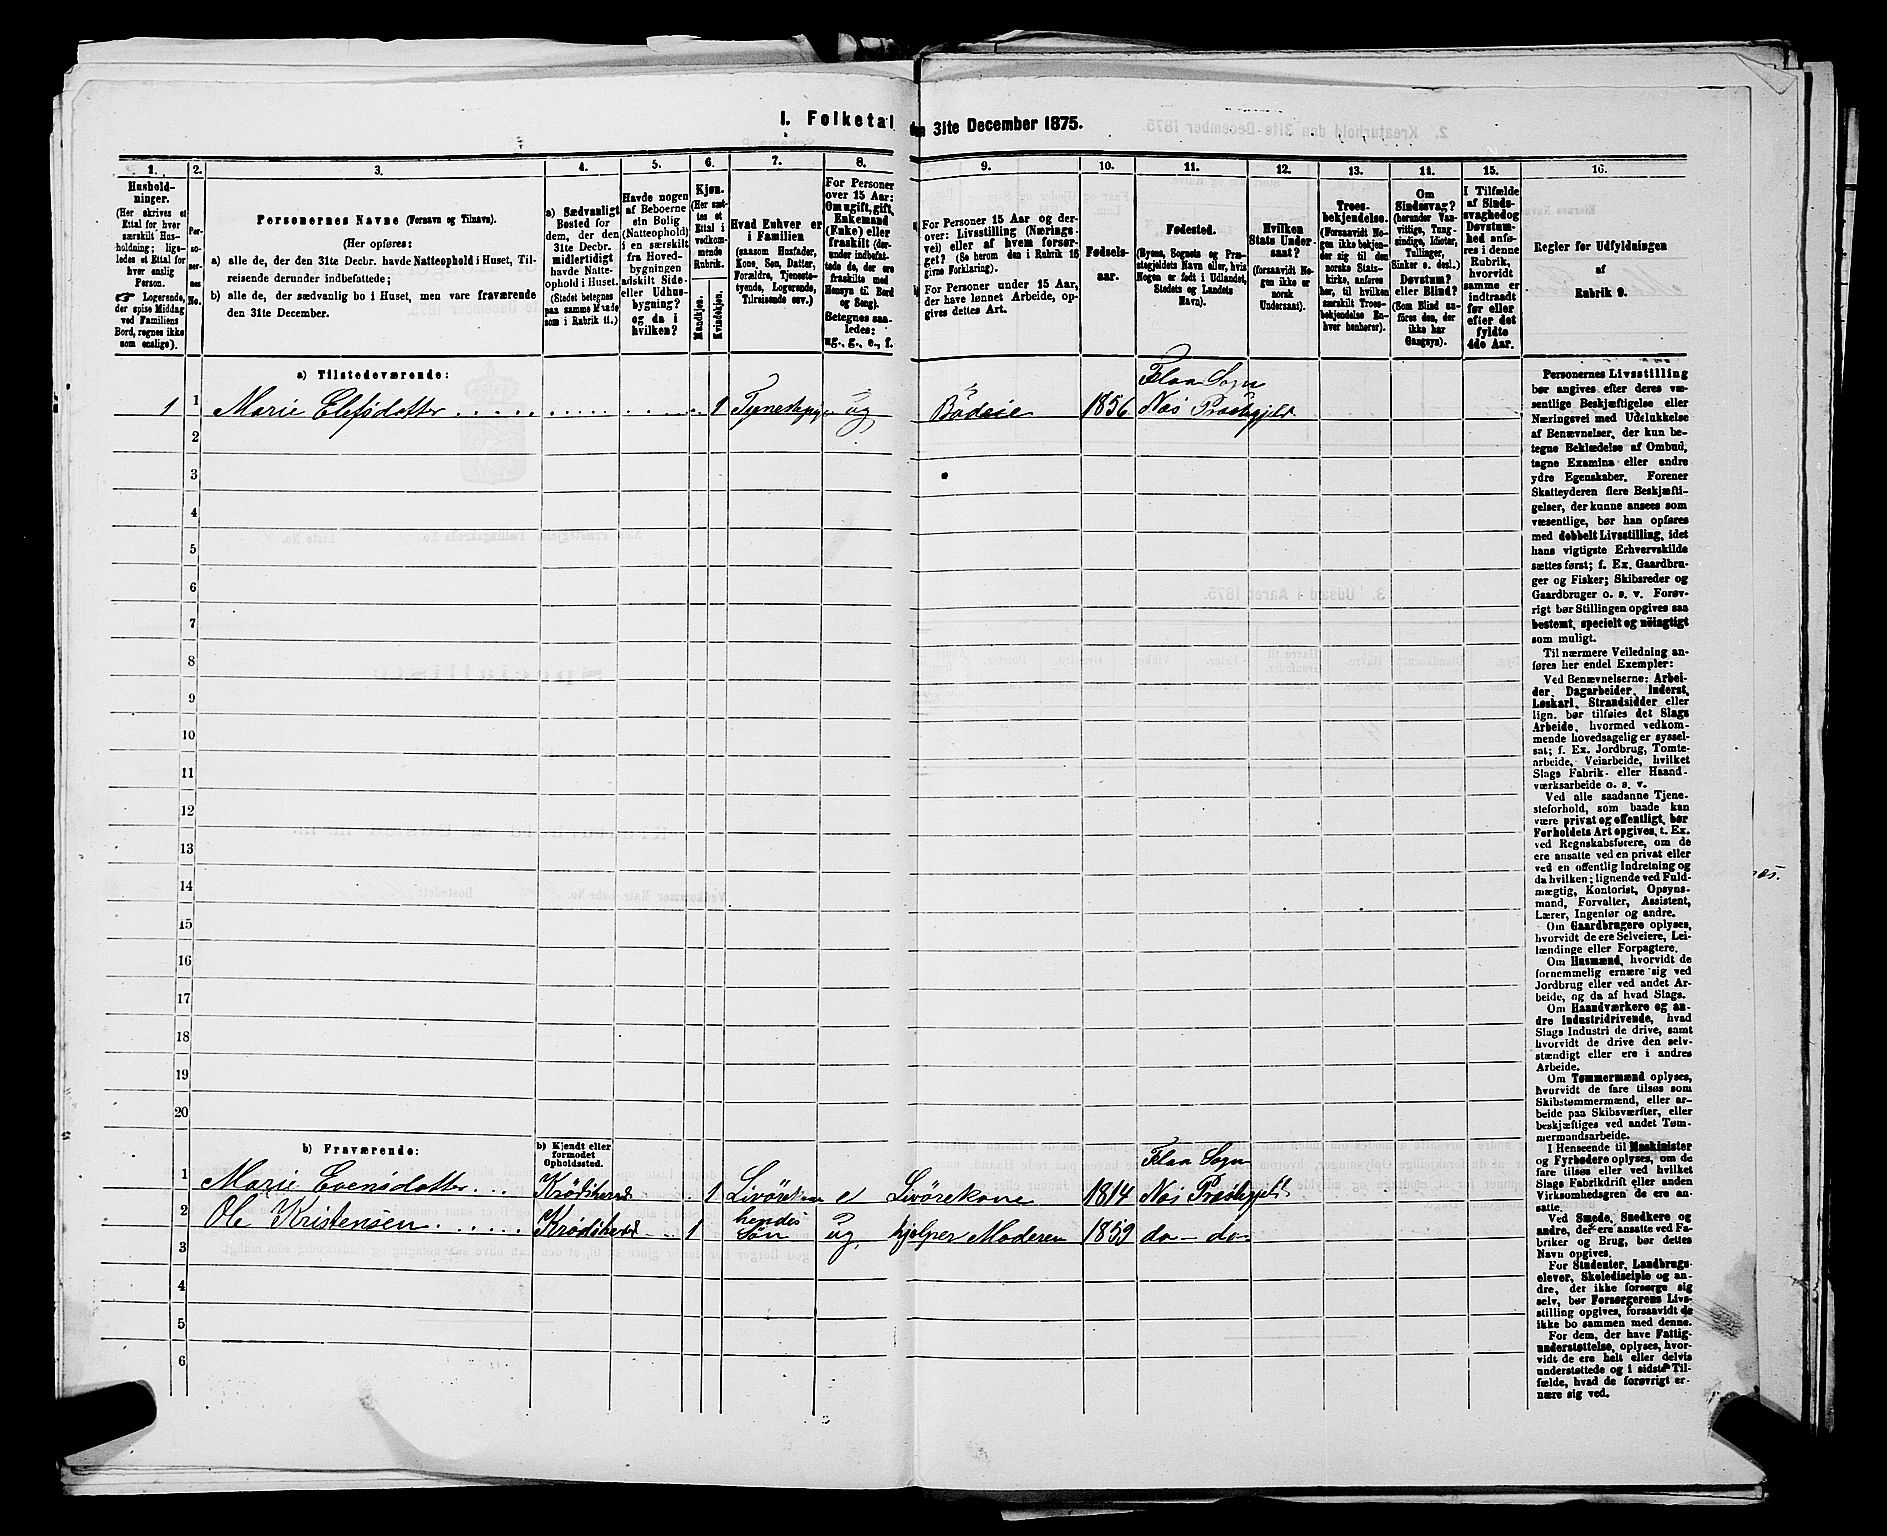 I. Folketal den 31te December 1875.
1. 2. 3. 4. 5. 6. 7. 8. 9. 10. 11. 12. 13. 14. 15. 16.
Husholdninger.
(Her skrives et
Ettal for hver
særskilt Husholdning;
ligeledes et Ettal for
hver enslig
Person.
☞ Logerende,
der spise Middag
ved Familiens
Bord, regnes ikke
som enslige).
Personernes No.
Personernes Navne (Fornavn og Tilnavn).
(Her opføres:
a) alle de, der den 31te Decbr. havde Natteophold i Huset, Tilreisende derunder indbefattede;
b) alle de, der sædvanlig bo i Huset, men vare fraværende
den 31te December.
a) Sædvanligt
Bosted for
dem, der den
31te Decbr.
midlertidigt
havde Natteophold i Huset.
(Stedet betegnes
paa samme Maade
som i Rubrik 11.)
Havde nogen
af Beboerne
sin Bolig
(Natteophold)
i en særskilt
fra Hovedbygningen
adskilt Side-
eller Udhusbygning?
og da i
hvilken?
Kjøn.
(Her sættes et
Ettal i
vedkommende
Rubrik.
Mandkjøn.
Kvindekjøn.
Hvad Enhver er
i Familien
(saasom Husfader,
Kone, Søn, Datter,
Forældre, Tjenestetyende, Logerende,
Tilreisende osv.)
For Personer
over 15 Aar:
Om ugift, gift,
Enkemand
(Enke) eller
fraskilt (derunder indbefattede de, der ere
fraskilte med
Hensyn til Bord
og Seng).
Betegnes saaledes:
ug., g., e., f.
For Personer 15 Aar og derover: Livsstilling (Næringsvei) eller af hvem forsørget? (Se herom den i Rubrik 16
givne Forklaring).
For Personer under 15 Aar,
der have lønnet Arbeide, opgives dettes Art.
Fødselsaar.
Fødested.
(Byens, Sognets og Præstegjeldets Navn eller, hvis
Nogen er født i Udlandet,
Stedets og Landets
Navn).
Hvilken
Stats Undersaat?
(forsaavidt Nogen ikke er
norsk
Undersaat).
Troesbekjendelse.
(Forsaavidt Nogen ikke bekjender sig til den
norske Statskirke, anføres
her, til hvilken
særskilt Troesbekjendelse Enhver henhører).
Om
Sindssvag?
(herunder Vanvittige, Tungsindige, Idioter,
Tullinger,
Sinker o. desl.)
Døvstum?
eller Blind?
(Som Blind anføres den, der
ikke har
Gangsyn).
I Tilfælde
af Sindssvaghed og
Døvstumhed anføres i denne
Rubrik,
hvorvidt
samme er
indtraadt
før eller
efter det
fyldte
4de Aar.
Regler før Udfyldningen
af
Rubrik 9.
a) Tilstedeværende:
Flaa Sogn
1 1 Marie Elefsdatter 1 ug Bödeie 1856 Næs Præstegjeld
2
3
4
5
6
7
8
9
10
11
12
13
14
15
16
17
18
19
20
b) Fraværende:
b) Kjendt eller
formodet
Opholdssted.
Flaa Sogn
1 Marie Evensdatter Krödsherred 1 e Livörekone 1814 Næs Præstegjeld
2 Ole Kristensen Krödsherred 1 hendes Sön ug hjelper Moderen 1859 do - do
3
4
5
6
Personernes Livsstilling
bør angives efter deres væsentlige Beskjæftigelse eller
Næringsvei med Udelukkelse
af Benævnelser, der kun betegne Beklædelse af Ombud,
tagne Examina eller andre
ydre Egenskaber. Forener
Skatteyderen flere Beskjæftigelser, der kunne ansees som
væsentlige, bør han opføres
med dobbelt Livsstilling, idet
hans vigtigste Erhvervskilde
sættes først; f. Ex. Gaardbruger og Fisker; Skibsreder og
Gaardbruger o. s. v. Forøvrigt bør Stillingen opgives saa
bestemt, specielt og nöiagtigt
som muligt.
Til nærmere Veiledning anføres her endel Exempler:
Ved Benævnelserne: Arbeider, Dagarbeider, Inderst,
Løskarl, Strandsidder eller
lign. bør tilføies det Slags
Arbeide, hvormed vedkommende hovedsagelig er sysselsat; f. Ex. Jordbrug, Tomtearbeide, Veiarbeide, hvilket
Slags Fabrik- eller Haandværksarbeide o. s. v.
Ved alle saadanne Tjenesteforhold, som baade kan
være privat og offentligt, bør
Forholdets Art opgives, t. Ex.
ved Regnskabsførere, om de
ere ansatte ved en privat eller
ved en offentlig Indretning og
da hvilken; lignende ved Fuldmægtig, Kontorist, Opsynsmand, Forvalter, Assistent,
Lærer, Ingeniør og andre.
Om Gaardbrugere oplyses,
hvorvidt de ere Selveiere, Leilændinge eller Forpagtere.
Om Husmænd, hvorvidt de
fornemmelig ernære sig ved
Jordbrug eller ved andet Arbeide, og da af hvad Slags.
Om Haandværkere og andre industridrivende, hvad
Slags Industri de drive, samt
hvorvidt de drive den selvstændigt eller ere i andres
Arbeide.
Om Tømmermænd oplyses,
hvorvidt de fare tilsøs som
Skibstømmermænd, eller arbeide paa Skibsværfter, eller
beskjæftiges ved andet Tømmermandsarbeide.
I Henseende til Maskinister
og Fyrbødere oplyses, om de
fare tilsøs eller ved hvilket
Slags Fabrikdrift eller anden
Virksomhedsgren de ere ansatte.
Ved Smede, Snedkere og
andre, der ere ansatte ved Fabriker og Brug, bør dettes
Navn opgives.
For Studenter, Landbrugselever, Skoledisciple og andre, der ikke forsørge sig
selv, bør Forsørgerens Livsstilling opgives, forsaavidt de
ikke bo sammen med denne.
For dem, der have Fattigunderstøttelse, oplyses, hvorvidt de ere helt eller delvis
understøttede og i sidste Tilfælde, hvad de forøvrigt ernære sig ved.